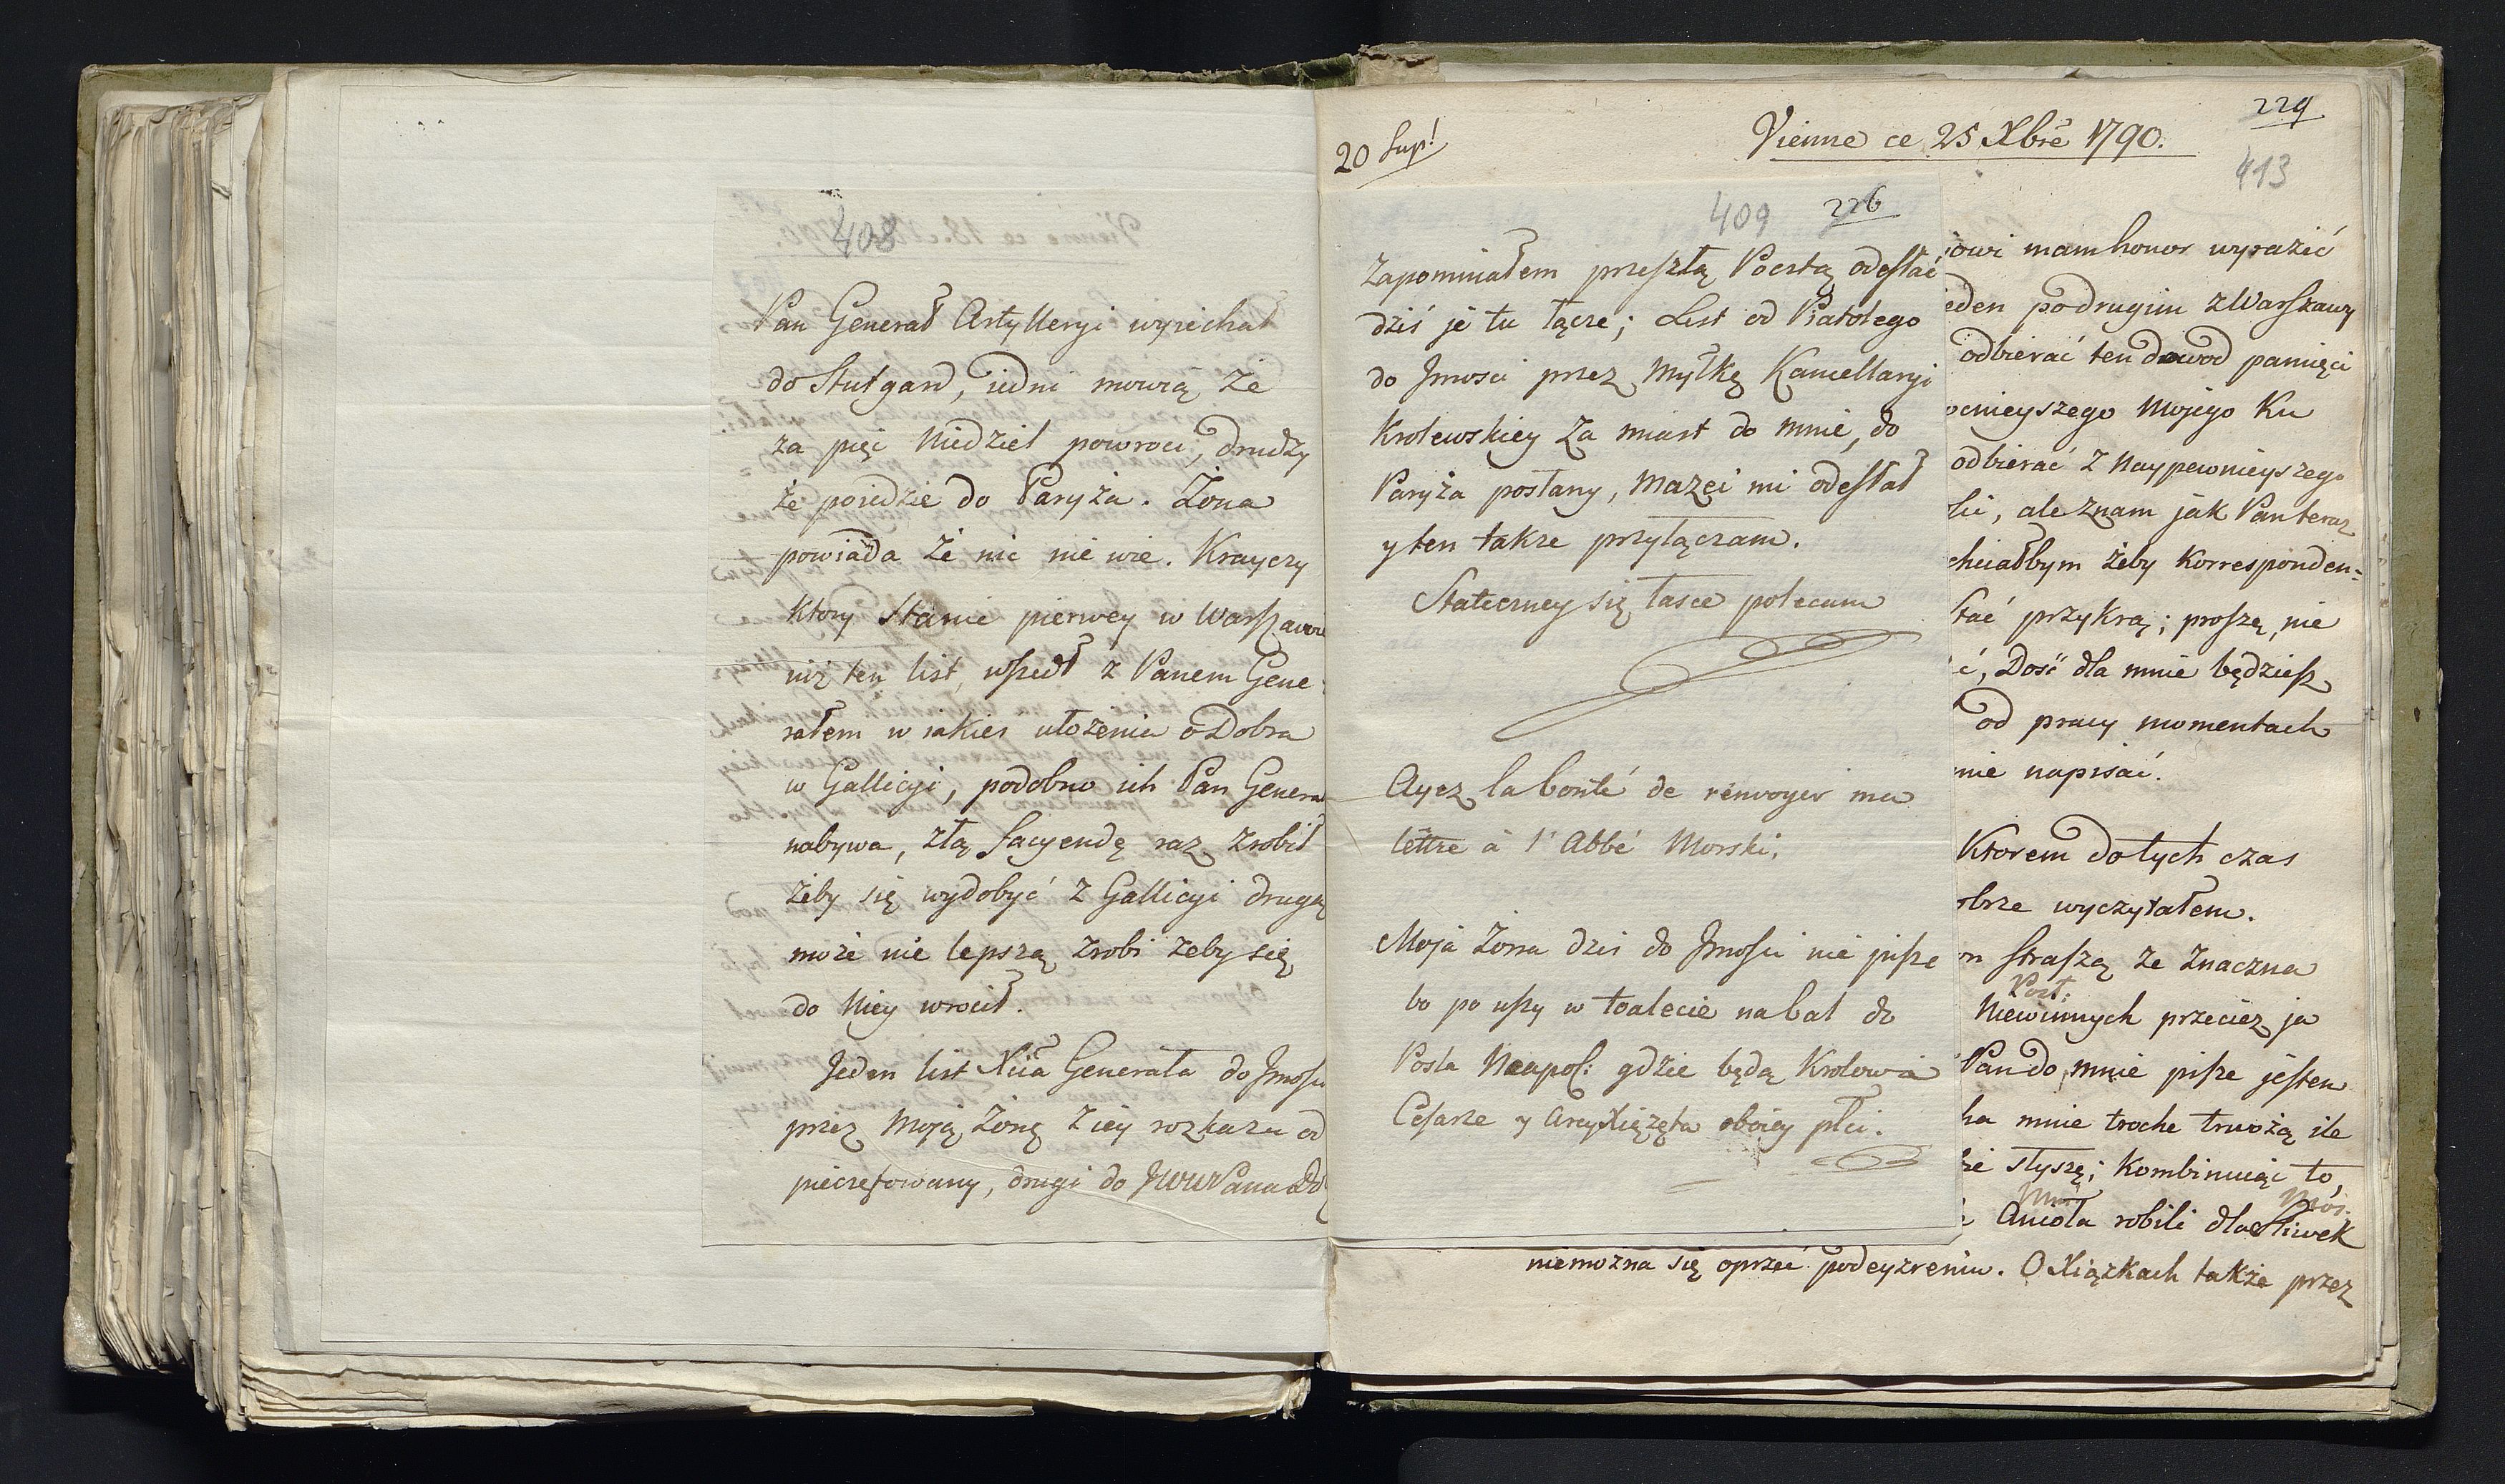 408
Pan Generał Artylleryi wyiechał
do Stutgard, iedni mowią że
za pięc Niedziel powroci, drudzy
że poiedzie do Paryża. Żona
powiada że nic nie wie. Krayczy
ktory stanie pierwey w Warszawie
niż ten list, wszedł z Panem Gene
rałem w iakieś ułożenia o Dobra
w Gallicyi, podobno ich Pan Generał
nabywa, złą facyendę raz zrobił
żeby się wydobyć z Gallicyi drugą
może nie lepszą zrobi żeby się
do Niey wrocił.
Jeden list Xcia Generała do Jmości
przez Moją Żonę z iey rozkazu od
pieczętowany, drugi do JWW Pana
409 226
Zapomniałem przeszłą Pocztą odesłać
dziś je tu łącze; List od Piatolego
do Jmosci przez Myłkę Kancellaryi
Krolewskiey za miast do mnie, do
Paryża posłany, Mazei mi odesłał
y ten także przyłączam.
Stateczney się łasce polecam
Ayez la bonté de renvoyer ma
lettre à l'Abbé Morski.
Moja Żona dzis do Jmości nie pisze
bo po uszy w toalecie na bal do
Posła Neapol: gdzie będą Krolowie
Cesarze y ArcyXiązęta oboiey płci.
20 Sup!
Vienne ce 25 Xbre 1790.
229
413
iowi mam honor wyrazić
eden po drugim z Warszawy
odbierać ten dowod pamięci
ocnieyszego Mojego Ku
odbierać z Naypewnieyszego
ale znam jak Pan teraz
chciałbym żeby Korresponden=
stać przykrą; proszę, nie
ć, Dość dla mnie będziesz
od pracy momentach
mie napisać.
Ktorem do tych czas
obrze wyczytałem.
m Straszą że znaczna
Post:
Niewinnych przecież ja
Pan do mnie pisze jestem
ha mnie troche trwożą ile
słyszę; Kombinując to,
Anioła robili dla Sliwek
niemożna się oprzeć podeyzreniu. O Xiązkach także przez